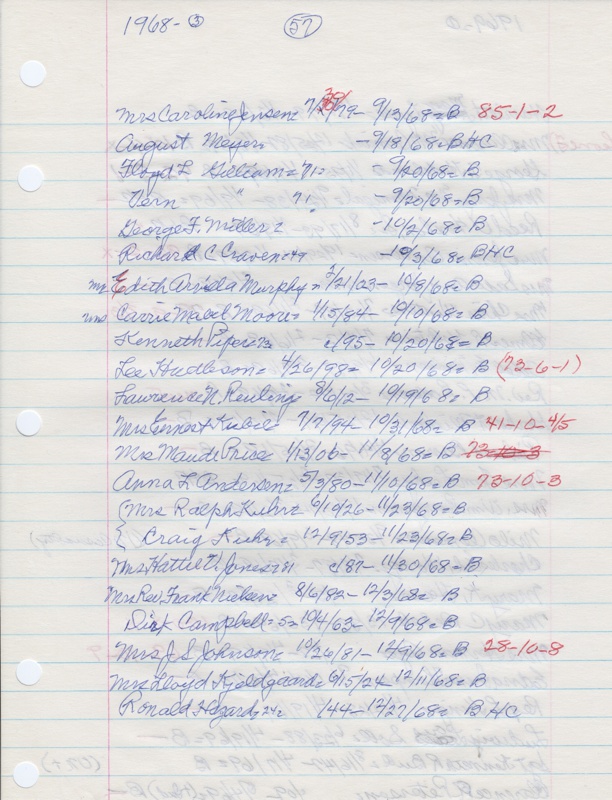 1968-③ 57
Mrs Caroline Jensen= 7/30/79- 9/13/68=B 85-1-2
August Meyer, -9/18/68=BHC
Floyd L Gilliam=71= -9/20/68=B
Vern " 71= -9/20/68=B
George F. Miller= -10/2/68=B
Richard C Craven=49 -10/3/68=BHC
Mrs Edith Arvilla Murphy= 2/21/23- 10/8/68=B
Mrs Carrie Mabel Moore= 1/15/84- 10/10/68=B
Kenneth Piper= c/95- 10/20/68=B
Lee Hudleson= 4/26/98= 10/20/68= B (73-6-1)
Lawrence N. Reuling= 8/6/12- 10/19/68= B
Mrs Ernest Kubie= 7/7/94- 10/31/68= B 41-10-4/5
Mrs Maude Price= 1/13/06- 11/8/68=B 73-10-3
Anna L Andersen= 5/3/80-11/10/68=B 73-10-3
{Mrs Ralph Kuhn= 9/19/26-11/23/68=B
{ Craig Kuhn= 12/9/53-11/23/68=B
Mrs Hattie V. Jones=81 c/87- 11/30/68= B
Mrs Rev. Frank Nielsen= 8/6/82- 12/3/68= B
Dirk Campbell=5= 10/4/63- 12/9/68=B
Mrs J.S. Johnson= 10/26/81- 12/9/68= B 28-10-8
Mrs Lloyd Kjeldgaard= 6/15/24 12/11/68=B
Ronald Hazard, 24= /44- 12/27/68= B HC